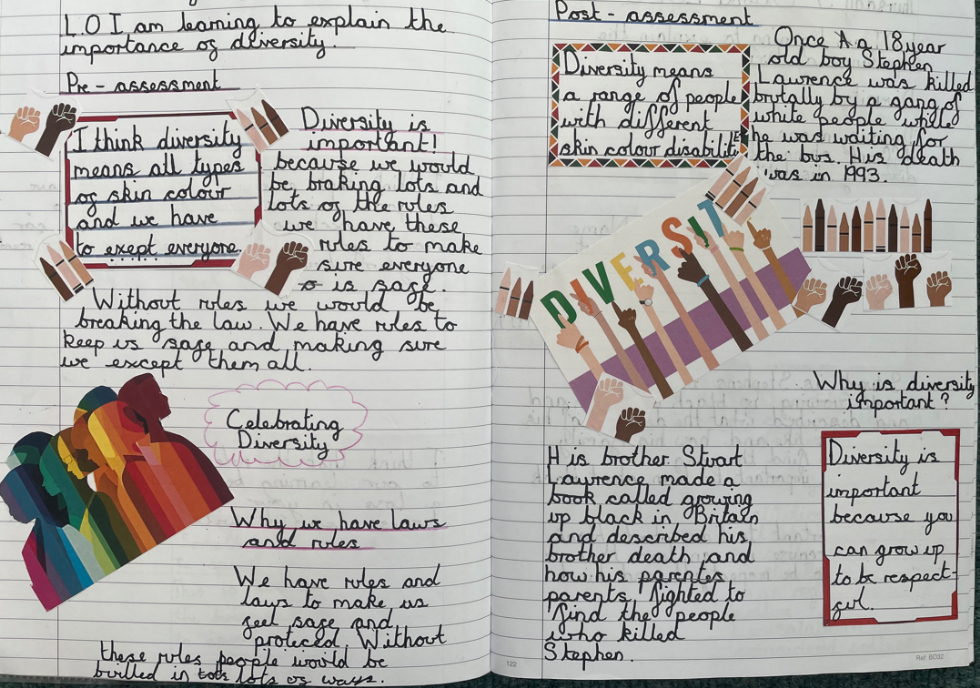 L.O I am learning to explain the
importance of diversity.
Pre-assessment
I think diversity
means all types
of skin colour
and we have
to exept everyone
Diversity is
important!
because we would
be braking lots and
lots of the rules
we have these
rules to make
sure everyone
is safe.
Without rules we would be
breaking the law. We have rules to
keep us safe and making sure
we except them all.
Celebrating
Diversity
Why we have laws
and rules
We have rules and
laws to make us
feel safe and
proteced. Without
these rules people would be
bullied in lots of ways.
Post-assessment
Diversity means
a range of people
with different
skin colour disability
Once a 18 year
old boy Stephen
Lawrence was killed
brutally by a gang of
white people while
he was waiting for
the bus. His death
was in 1993.
DIVERSIT
Why is diversity
important?
His brother Stuart
Lawrence made a
book called growing
up black in Britain
and described his
brother death and
how his parentes
parents fighted to
find the people
who killed
Stephen.
Diversity is
important
because you
can grow up
to be respect-
ful.
122
Ref: B032